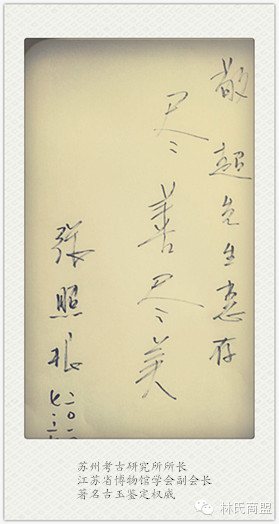 敬超先生惠存
尽善尽美
張照根
二〇一
苏州考古研究所所长
江苏省博物馆学会副会长
著名古玉鉴定权威
林氏商盟